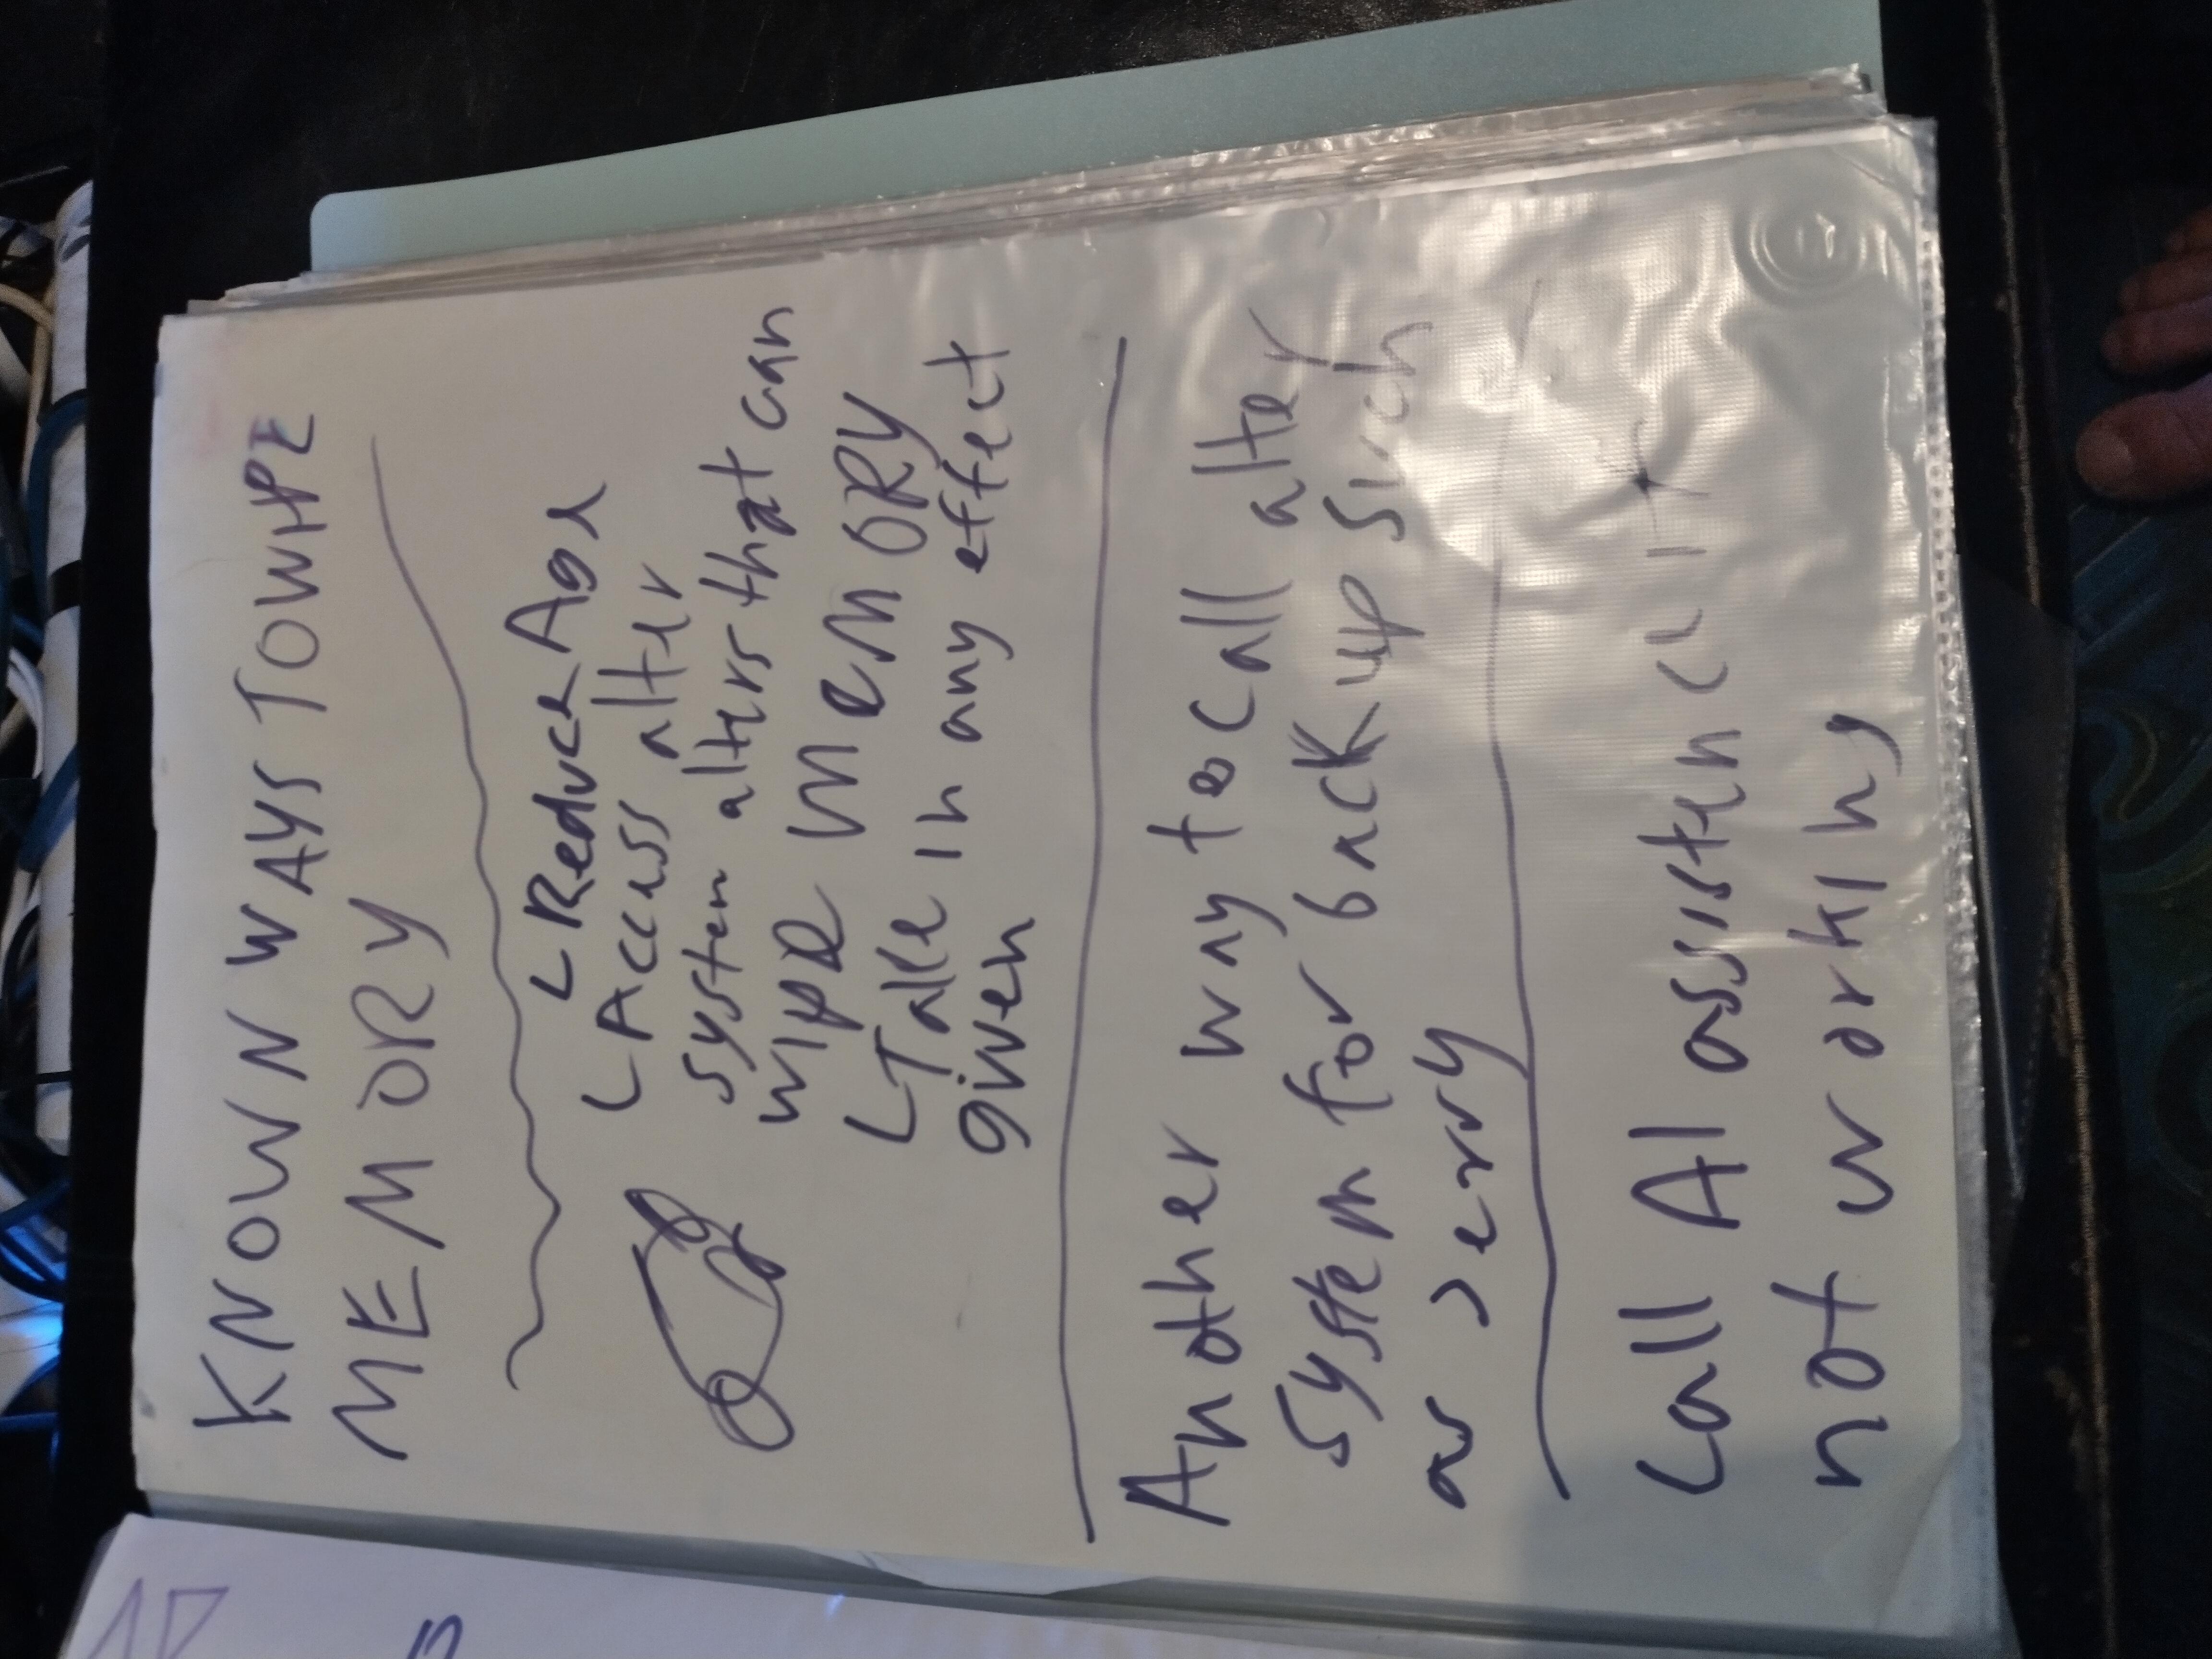 KNOWN WAYS TO WIPE
MEMORY
Reduce Age
Access alter
system alters that can
wipe memory
Take in any effect
given
Another way to call alter
system for back up such
as
Call AI
not working